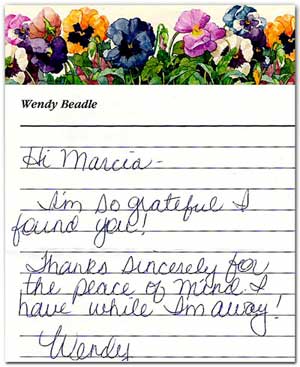 Wendy Beadle
Hi Marcia -
I'm so grateful I
found you!
Thanks sincerely for
the peace of mind I
have while I'm away!
Wendy